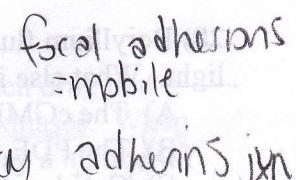 focal adhesions
=mobile
adherins jxn